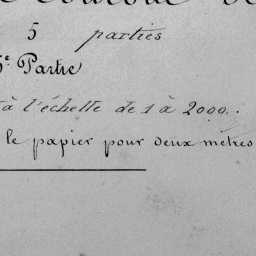 5 parties
5e Partie
à l'échelle de 1 à 2000.
le papier pour deux mètres